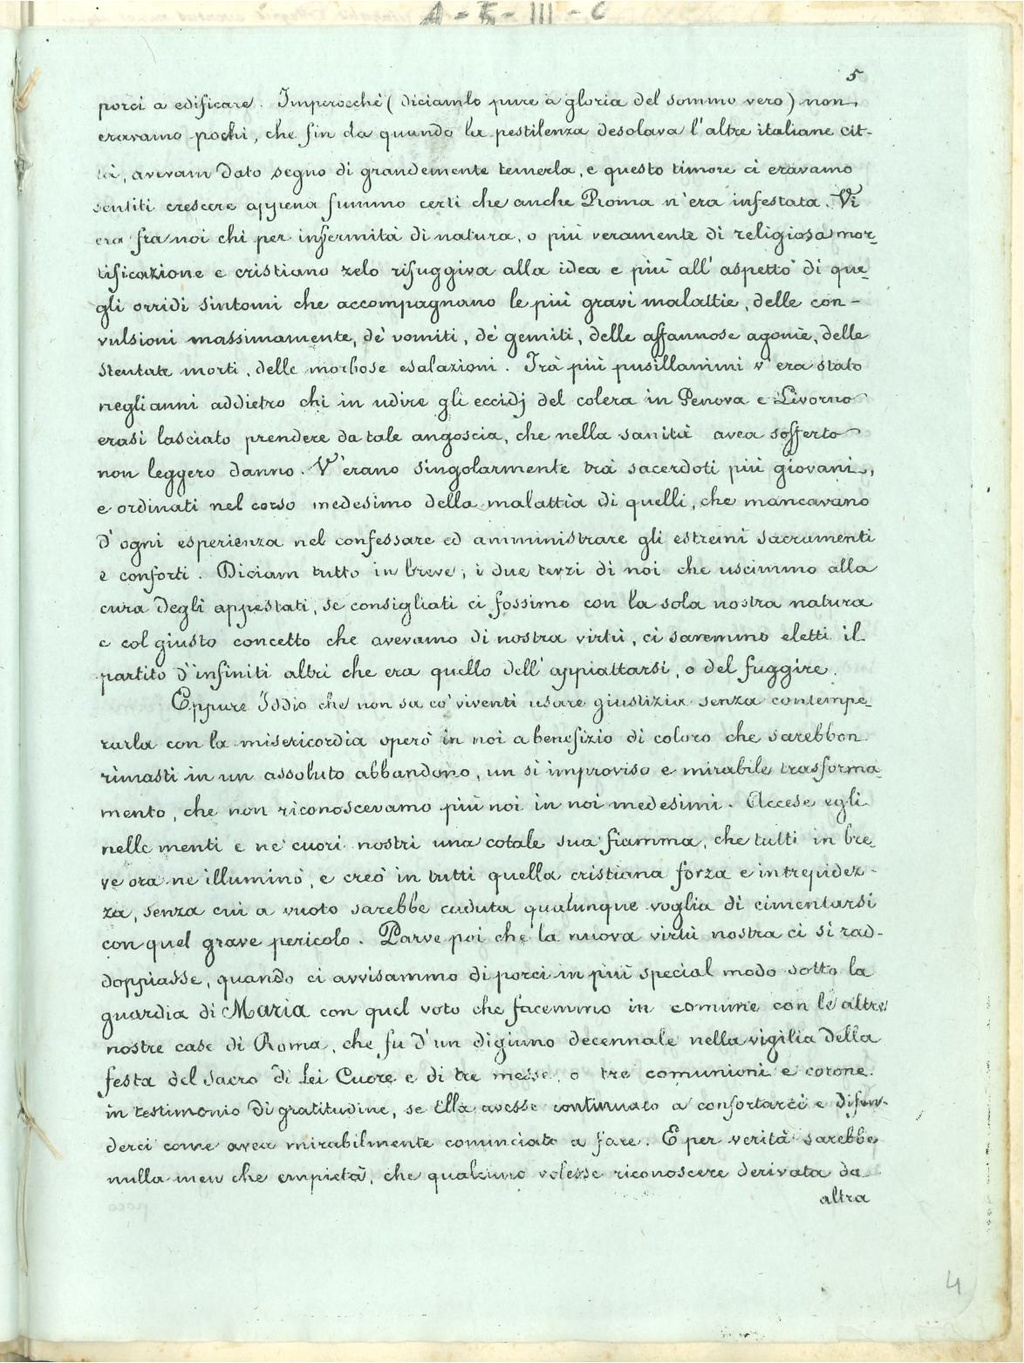 A-E-III-C
5
porci a edificare. Imperocchè (diciamlo pure a gloria del sommo vero) non
eravamo pochi, che fin da quando la pestilenza desolava l'altre italiane cit-
tà, avevam dato segno di grandemente temerla, e questo timore ci eravamo
sentiti crescere appena fummo certi che anche Roma n'era infestata. Vi
era fra noi chi per infermità di natura, o più veramente di religiosa mor-
tificazione e cristiano zelo rifuggiva alla idea e più all'aspetto di que-
gli orridi sintomi che accompagnano le più gravi malattie, delle con-
vulsioni massimamente, de' vomiti, de' gemiti, delle affannose agonie, delle
stentate morti, delle morbose esalazioni. Trà più pusillanimi v'era stato
negli anni addietro chi in udire gli eccidj del colera in Genova e Livorno
erasi lasciato prendere da tale angoscia, che nella sanità avea sofferto
non leggero danno. V'erano singolarmente trà sacerdoti più giovani,
e ordinati nel corso medesimo della malattia di quelli, che mancavano
d'ogni esperienza nel confessare ed amministrare gli estremi sacramenti
e conforti. Diciam tutto in breve; i due terzi di noi che uscimmo alla
cura degli appestati, se consigliati ci fossimo con la sola nostra natura
e col giusto concetto che avevamo di nostra virtù, ci saremmo eletti il
partito d'infiniti altri che era quello dell'appiattarsi, o del fuggire.
Eppure Iddio che non sa co' viventi usare giustizia senza contempe-
rarla con la misericordia operò in noi a benefizio di coloro che sarebbon
rimasti in un assoluto abbandono, un sì improviso e mirabile trasforma-
mento, che non riconoscevamo più noi in noi medesimi. Accese egli
nelle menti e ne' cuori nostri una cotale sua fiamma, che tutti in bre-
ve ora ne illuminò, e creò in tutti quella cristiana forza e intrepidez-
za, senza cui a vuoto sarebbe caduta qualunque voglia di cimentarsi
con quel grave pericolo. Parve poi che la nuova virtù nostra ci si rad-
doppiasse, quando ci avvisammo di porci in più special modo sotto la
guardia di Maria con quel voto che facemmo in comune con le altre
nostre case di Roma, che fu d'un digiuno decennale nella vigilia della
festa del Sacro di Lei Cuore e di tre messe, o tre comunioni e corone
in testimonio di gratitudine, se Ella avesse continuato a confortarci e difen-
derci come avea mirabilmente cominciato a fare. E per verità sarebbe
nulla men che empietà, che qualcuno volesse riconoscere derivata da
altra
4